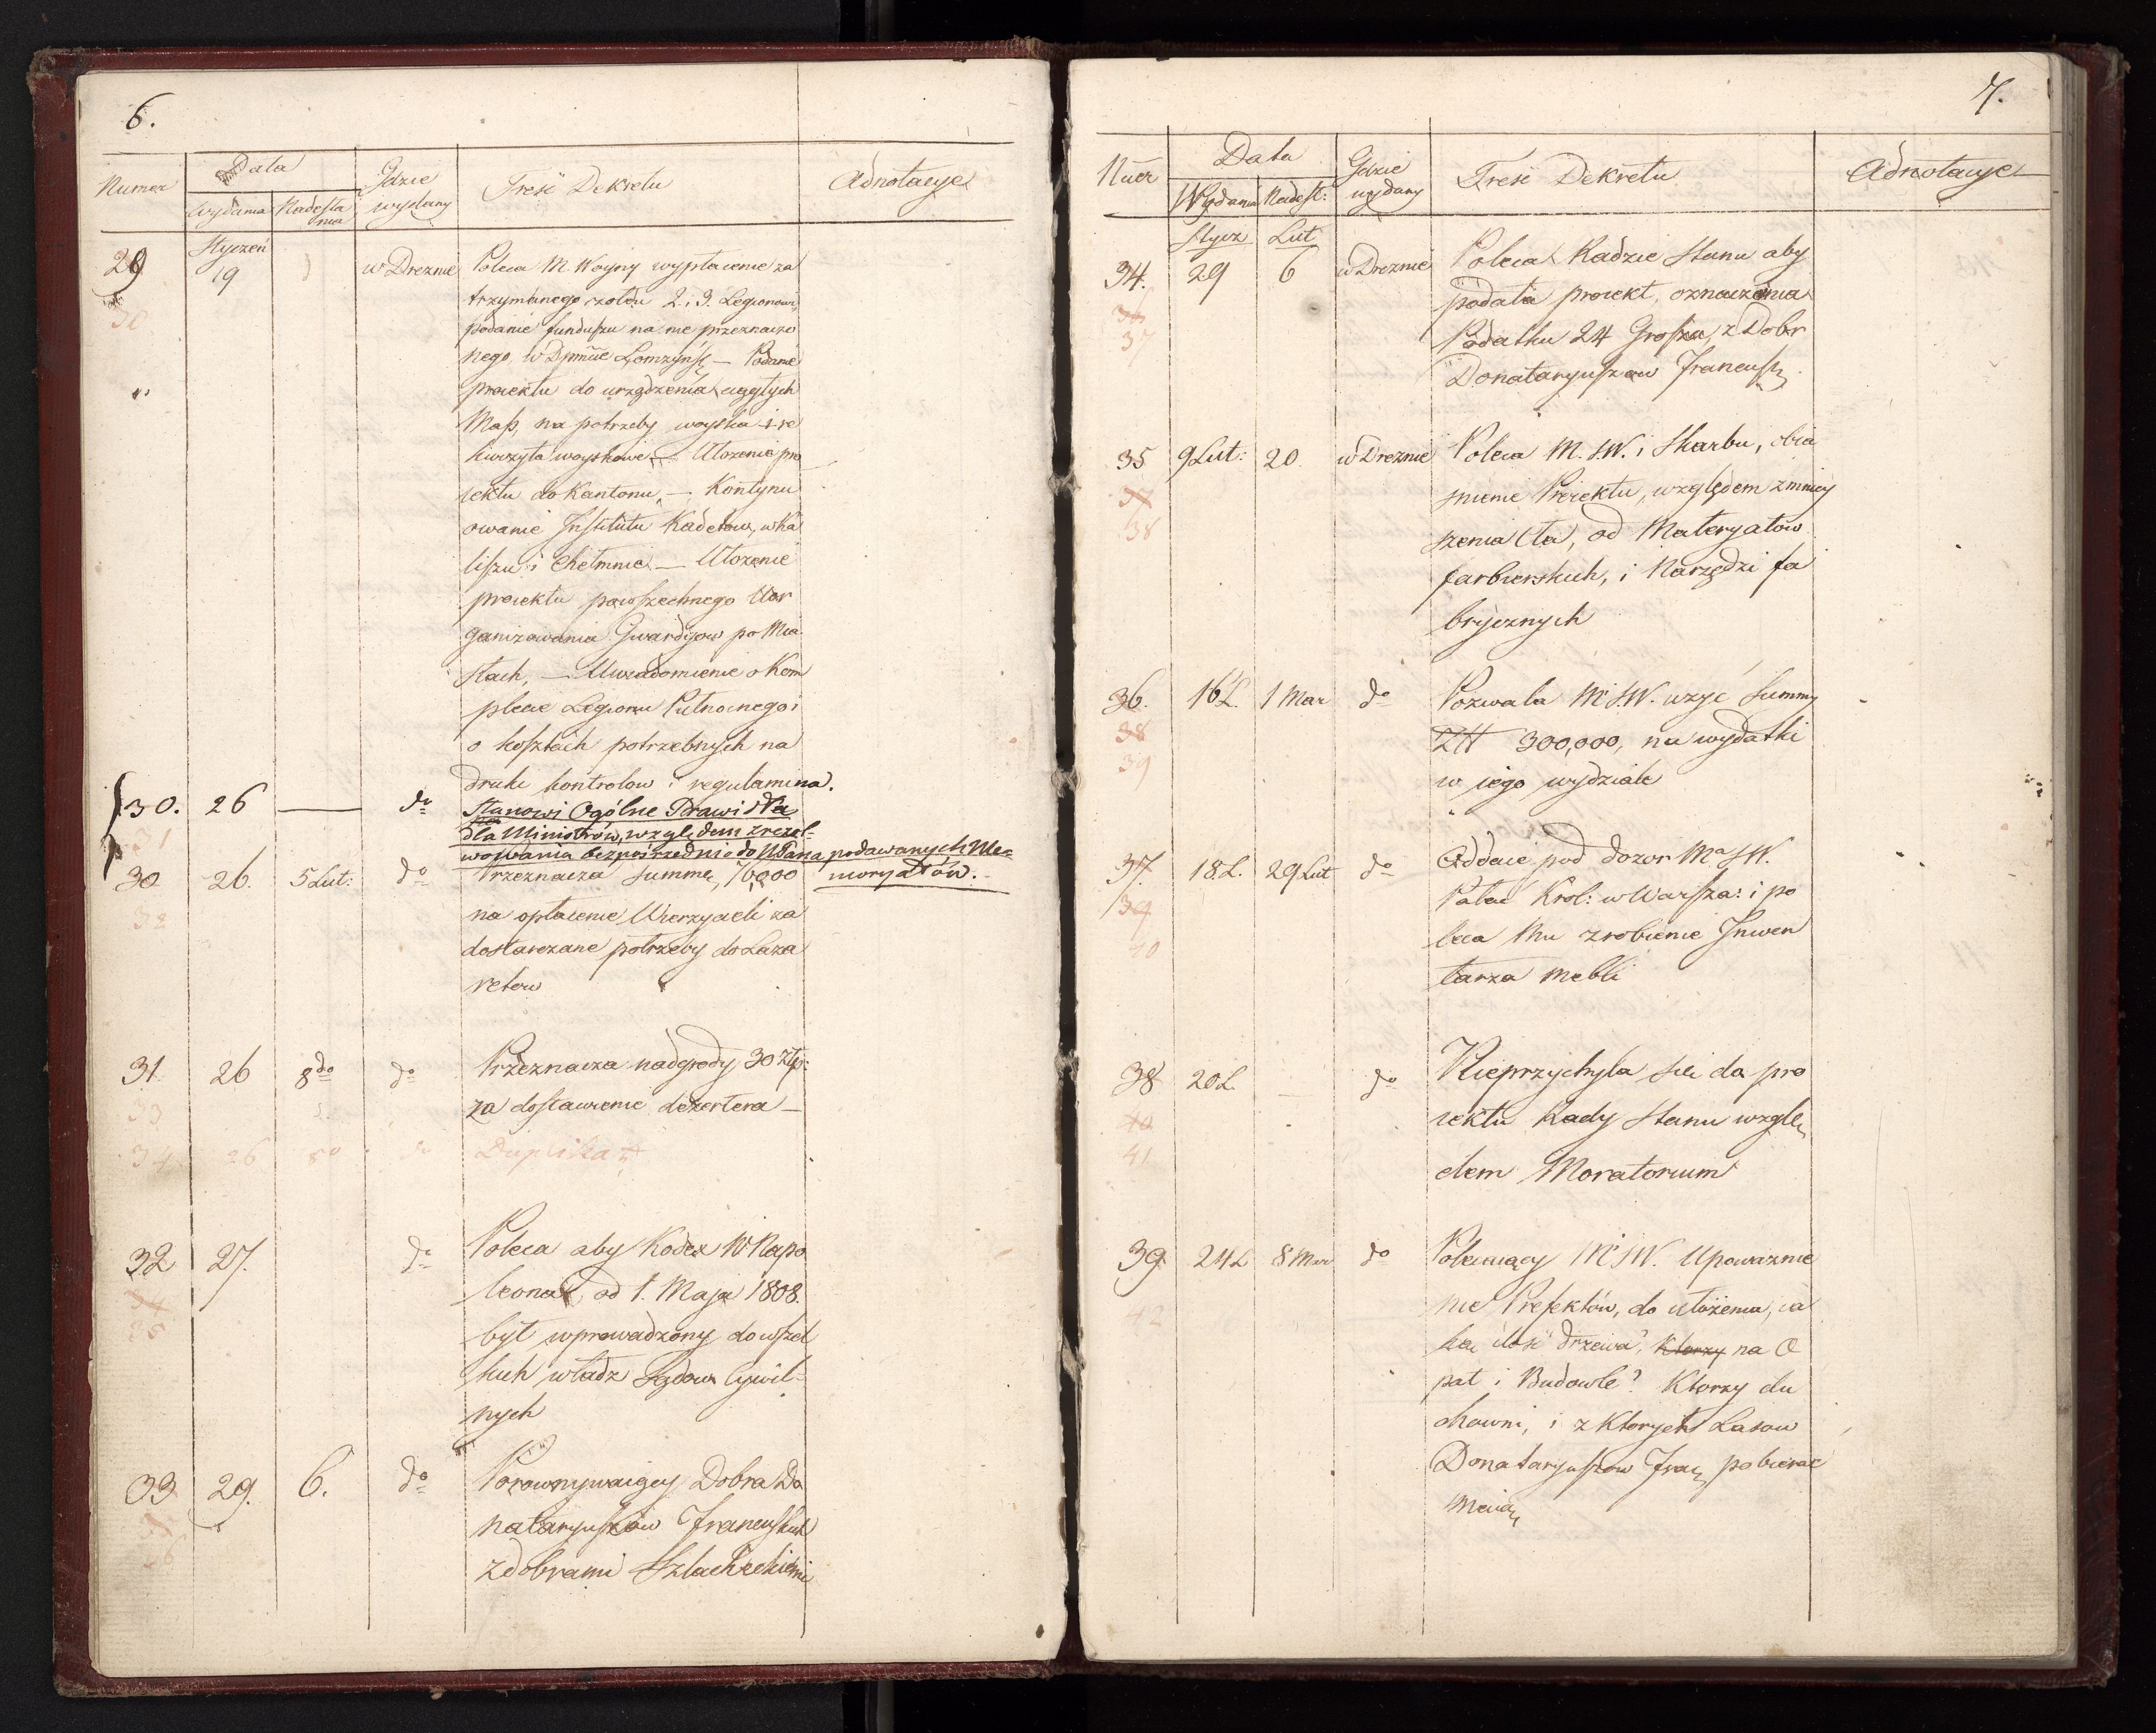 6.
Numer
Data
Wydania Nadesła
nia
Gdzie
wydany
Treść Dekretu
Adnotacye
Styczeń
29 19 w Dreznie Poleca M. Woyny wypłacenie za
30
trzymanego żołdu 2. i 3. Legionowi,
podanie funduszu na nie przeznaczo
nego, w Dpmcie Łomzyńsk — Podanie
proiektu do urządzenia ciągłych
Mass, na potrzeby woyska i re
kwizyta woyskowe, — Ułożenie pro
iektu do Kantonu, — Kontynu
owanie Institutu Kadetow, w Ka
liszu i Chełmnie — Ułozenie
proiektu powszechnego Uor
ganizowania Gwardyow po Mia
stach, — Uwiadomienie o Kom
plecie Legionu Pułnocnego i
o kosztach potrzebnych na
druk kontrolow i regulamina.
30. 26 — do Stanowi Ogólne Prawidła
31
dla Ministrów, względem zrezol-
wowania bezpośrednio do N Pana podawanych Me-
moryałów.
30 26. 5 Lut: do Przeznacza summę 76,000
32
na opłacenie Wierzycieli za
dostarczane potrzeby do Laza
retow
31 26 8 do do Przeznacza nadgrody 30 Złp:
33
za dostawienie dezertera —
34 26 8o do Duplikat
32 27. do Poleca aby Kodex Napo
34
35
leona, od 1. Maja 1808.
był wprowadzony do wszel
kich władz Sądow Cywil-
nych
33 29. 6. do Porownywaiący Dobra Do
35
36
nataryuszow Francuskich
z dobrami Szlacheckiemi
7.
Nuer
Data
Wydania Nadesł:
Gdzie
wydany
Treść Dekretu
Adnotacye
Stycz Lut
34. 29 6 w Dreznie Poleca Radzie Stanu aby
36
37
podała proiekt, oznaczenia
Podatku 24 Grosza, z Dobr
Donataryuszow Francusk
35 9 Lut: 20. w Dreznie Poleca M. S.W. i Skarbu, obia
37
38
snienie Proiektu, względem zmniey
szenia Cła, od Materyałow
farbierskich, i Narzędzi fa
brycznych
36. 16 L. 1 Mar do Pozwala Mi S.W. uzyć Summy
38
39
Zł 300,000, na wydatki
w iego wydziale
37. 18 L. 29 Lut do Oddaie pod dozor Ma S.W.
39
40
Pałac Krol: w Warsza: i po
leca Mu zrobienie Inwen
tarza mebli
38 20 L. do Nieprzychyla się do pro
40
41
iektu Rady Stanu wzglę
dem Moratorium
39 24 L 8 Mar do Polecaiący Mi S.W. Upoważnie
42
nie Prefektów, do ułożenia, ia
ką ilość drzewa, Ktorzy na O
pał i Budowle? Ktorzy du
chowni, i z Ktorych Lasow
Donataryuszow Fran pobierać
maią